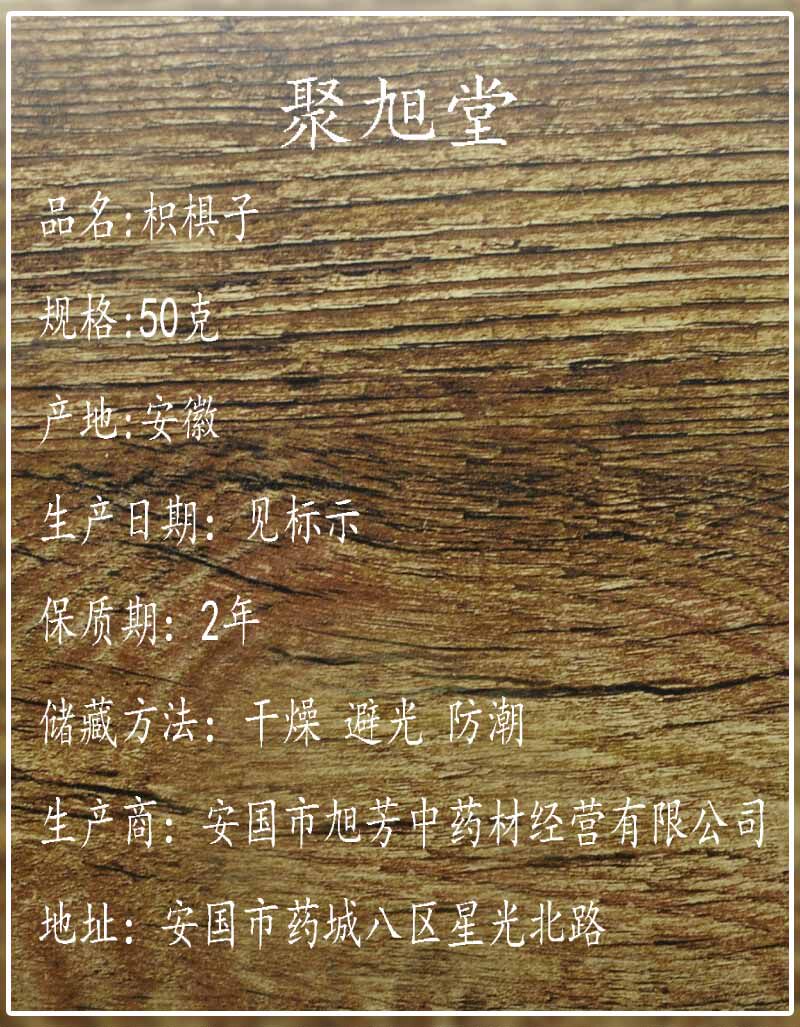 聚旭堂
品名:枳椇子
规格:50克
产地:安徽
生产日期：见标示
保质期：2年
储藏方法：干燥 避光 防潮
生产商：安国市旭芳中药材经营有限公司
地址：安国市药城八区星光北路